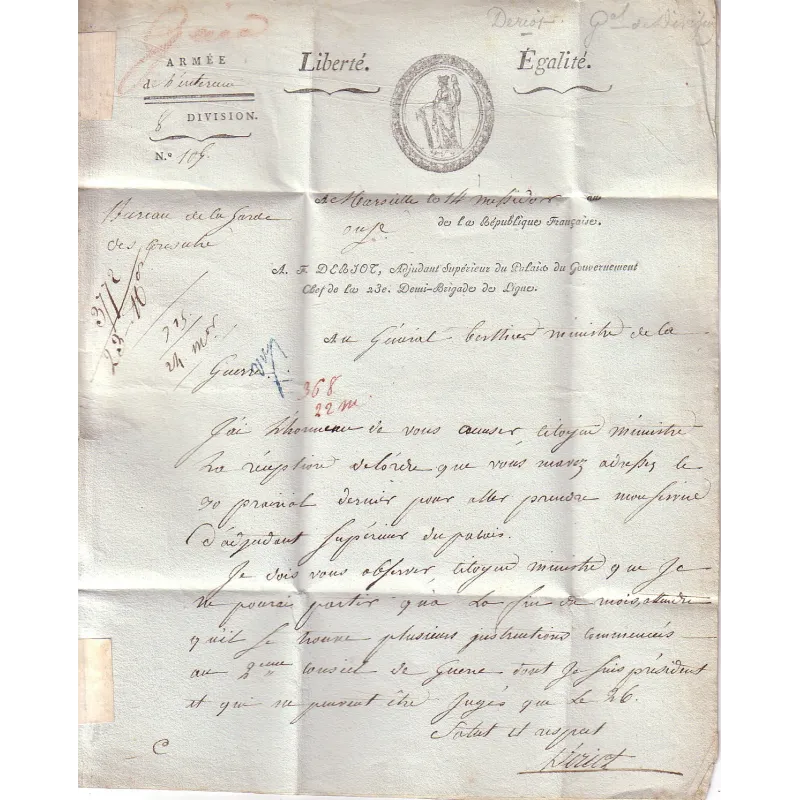 Deriot. Gal de Division
ARMÉE
de l'interieur
8 DIVISION.
N.º 105
Liberté. Égalité.
A Marseille le 14 messidor an
onze de la République Française.
Bureau de la Garde
des Consuls
A. F. DERIOT, Adjudant Supérieur du Palais du Gouvernement
Chef de la 23e. Demi-Brigade de Ligne.
3772
23 - 10
725
24 mor
Au Général berthier ministre de la
Guerre
368
22 m.
J'ai L'honneur de vous accuser, Citoyen ministre
La réception de l'órdre que vous mavez adressez le
30 prairial dernier pour aller prendre mon service
d'adjudant Supérieur du palais.
Je dois vous observer, Citoyen ministre que Je
ne pourai partir qu'à La fin du mois, attendu
qu'il se trouve plusieurs instructions commencés
au 2eme Conseil de Guerre dont Je suis président
et qui ne peuvent être Jugés que Le 26.
Salut et respect
Dériot